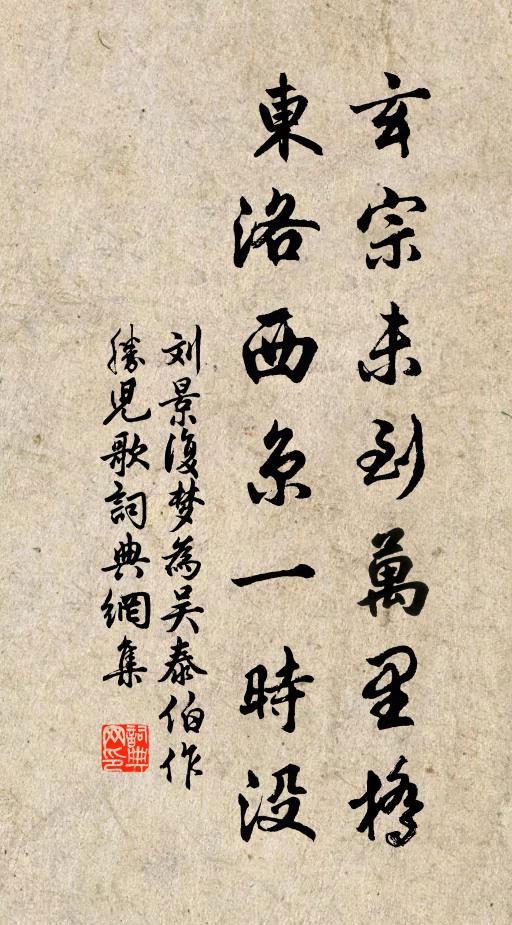 玄宗未到萬里橋
東洛西京一時没
刘景復梦為吴泰伯作
勝児歌詞典網集
詞典
网印